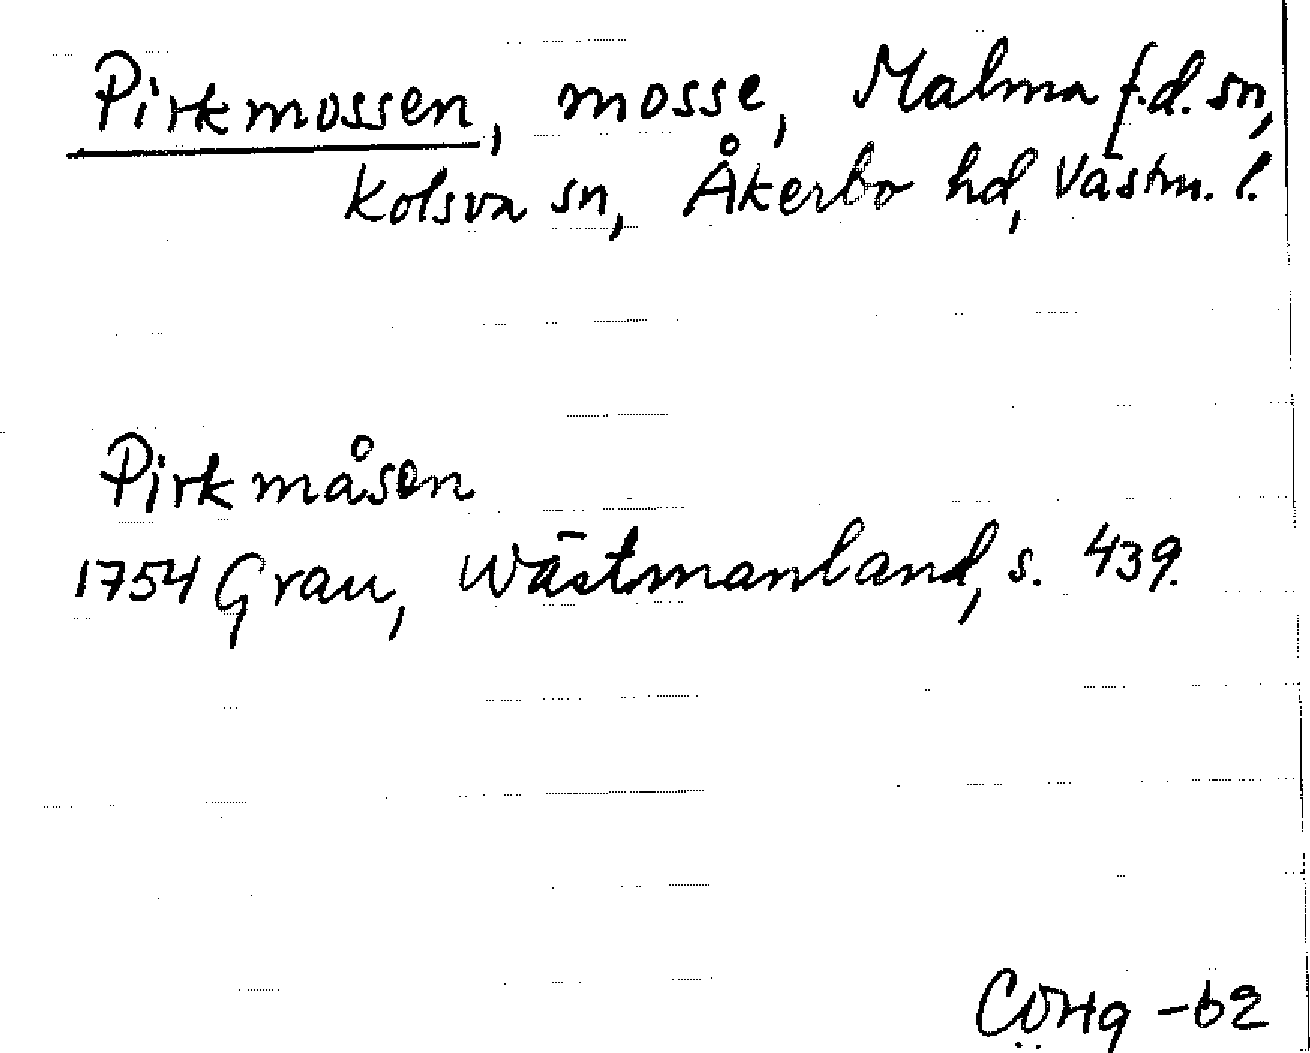 Pirkmossen, mosse, Malma f.d. sn,
Kolsva sn, Åkerbo hd, Västm. l.
Pirkmåsen
1754 Grau, Wästmanland, s. 439.
-62